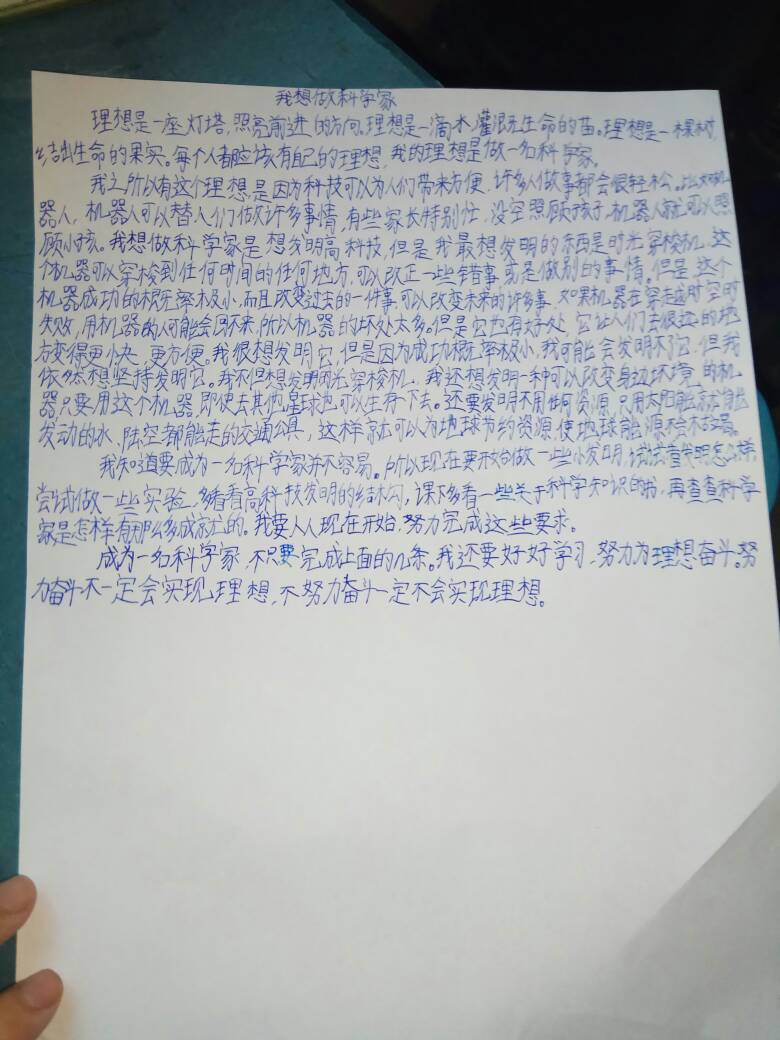 我想做科学家
理想是一座灯塔,照亮前进的方向。理想是一滴水,灌溉生命的苗。理想是一棵树,
结出生命的果实。每个人都应该有自己的理想,我的理想是做一名科学家。
我之所以有这个理想,是因为科技可以为人们带来方便,许多人做事都会很轻松。比如机
器人,机器人可以替人们做许多事情,有些家长特别忙,没空照顾孩子,机器人就可以照
顾小孩。我想做科学家是想发明高科技,但是我最想发明的东西是时光穿梭机,这
个机器可以穿梭到任何时间的任何地方,可以改正一些错事或是做别的事情,但是,这个
机器成功的概率极小,而且改变过去的一件事可以改变未来的许多事,如果机器在穿越时空时
失败,用机器的人可能会回不来,所以机器的坏处太多。但是它也有好处,它让人们去很远的地
方变得更快、更方便。我很想发明它,但是因为成功概率极小,我可能会发明不了它,但我
依然想坚持发明它。我不但想发明时光穿梭机,我还想发明一种可以改变身边环境的机
器,只要用这个机器,即使去其他星球也可以生存下去。还要发明不用任何资源,只用太阳能就能
发动的水、陆空都能走的交通公具,这样就可以为地球节约资源,使地球能源不会不故。
我知道要成为一名科学家并不容易。所以现在要开始做一些小发明,试试看发明怎么样,
尝试做一些实验,多看看高科技发明的结构,课下多看一些关于科学知识的书,再查查科学
家是怎样有那么多成就的。我要从现在开始,努力完成这些要求。
成为一名科学家,不只要完成上面的几条。我还要好好学习,努力为理想奋斗。努
力奋斗不一定会实现理想,不努力奋斗一定不会实现理想。